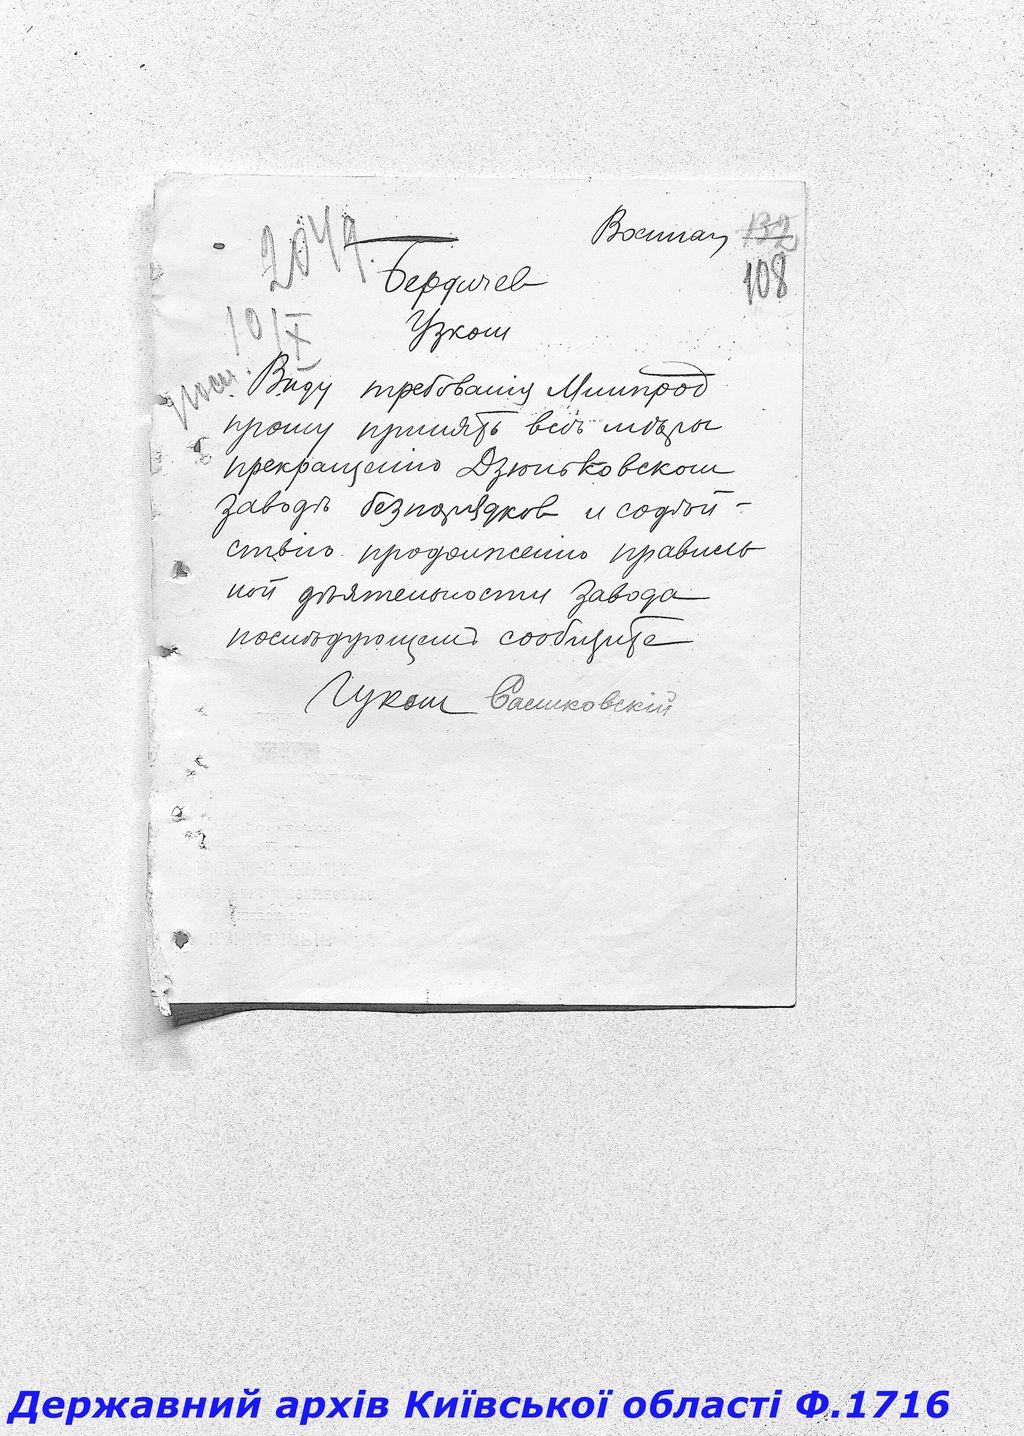 Военная 132
108
2044
Бердичев
10/X
Узком
Виду требования Минпрод
прошу принять всѣ мѣры
прекращению Дзюньковском
заводѣ безпорядков и содѣй-
ствию продолжению правиль
ной дѣятельности завода
послѣдующем сообщите
Губком Сашковскій
Державний архів Київської області Ф.1716